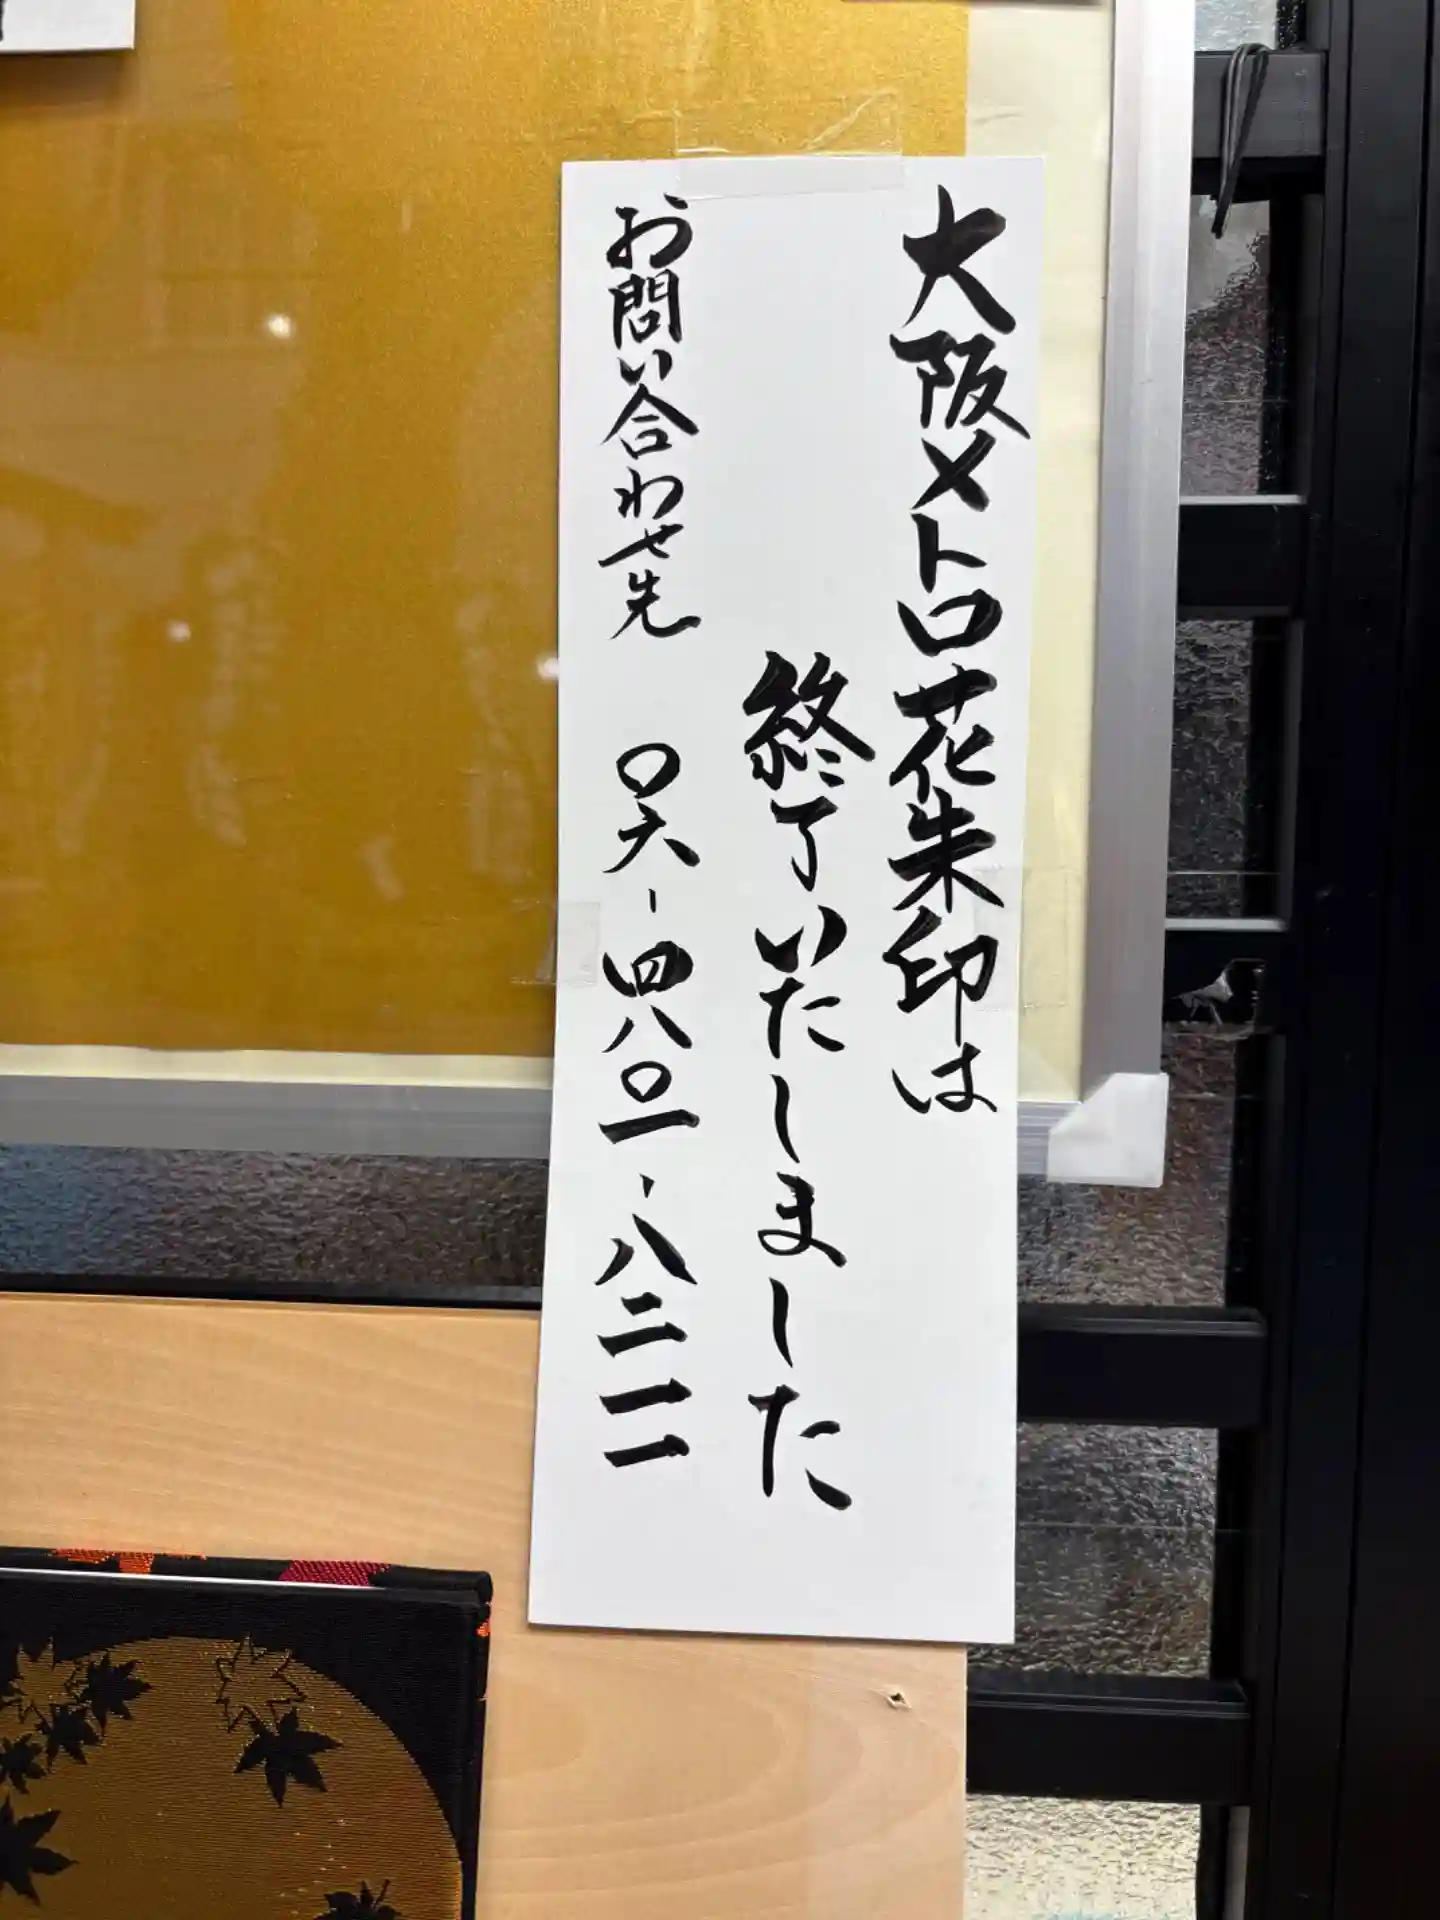 大阪メトロ花朱印は
終了いたしました
お問い合わせ先 〇六-四八〇一-八二一一